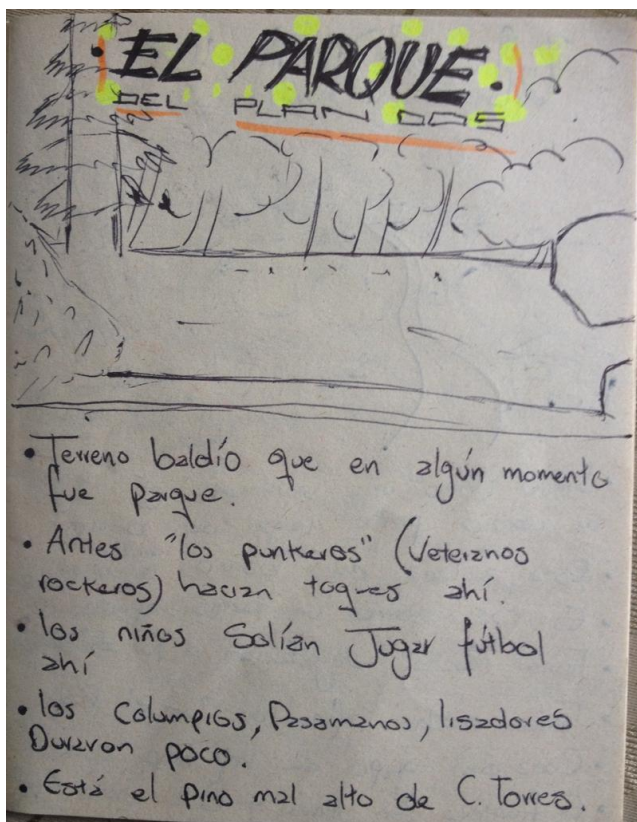 EL PARQUE.
DEL PLAN DOS
• Terreno baldío que en algún momento
fue parque.
• Antes "los punkeros" (Veteranos
rockeros) hacian toques ahí.
• los niños Solían Jugar fútbol
ahí
• los Columpios, Pasamanos, lisadores
Duraron poco.
• Está el pino mal alto de C. Torres.